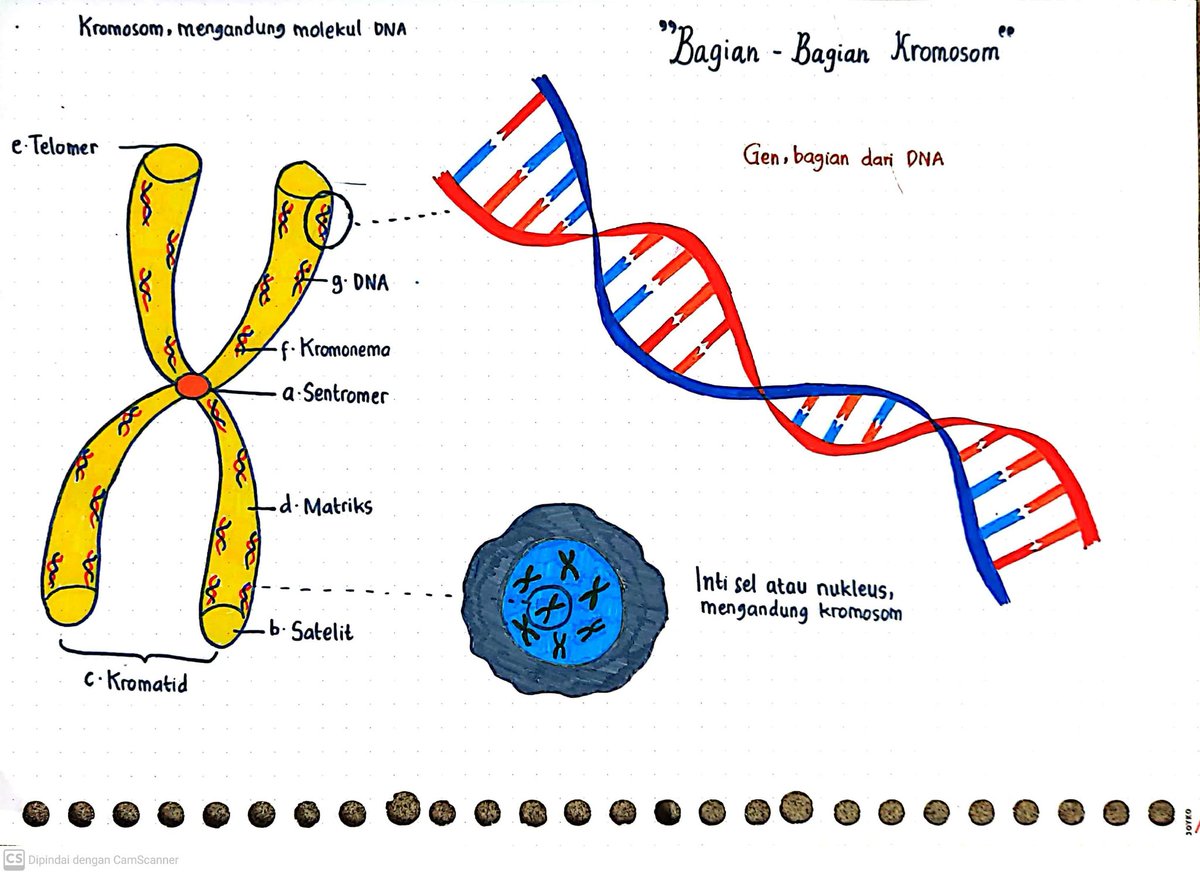 Kromosom, mengandung molekul DNA
"Bagian - Bagian Kromosom"
e. Telomer
Gen, bagian dari DNA
g. DNA
f. Kromonema
a. Sentromer
d. Matriks
b. Satelit
c. Kromatid
Inti sel atau nukleus,
mengandung kromosom
JOYKO
CS Dipindai dengan CamScanner